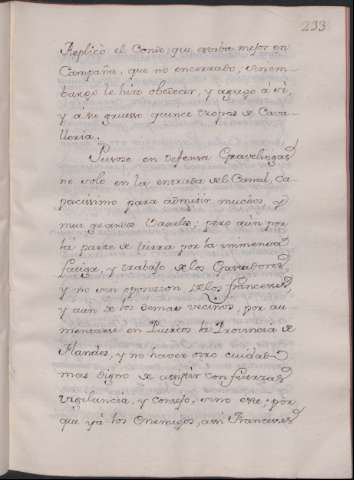 233
Replicò el Conde que estaba mejor en
Campaña, que no encerrado, sinem-
bargo le hizo obedecer, y agregò a sì,
y à su grueso quince tropas de Cava-
lleria.
Pusose en defensa Gravelingas
no solo en la entrada del Canal, ca-
pacissimo para admitir muchos, y
mui grandes Baxeles; pero aùn por
la parte de tierra por la inmensa
fatiga, y trabajo de los Gastadores,
y no sin oposicion de los franceses,
y aùn de los demas vecinos, por au-
mentarse en Puertos la Provincia de
Flandes, y no haver otro cuidado
mas digno de asistir con fuerzas
vigilancia, y consejo, sino este; por
que yà los Enemigos, asi Franceses